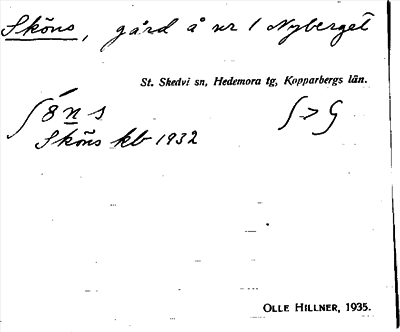 Sköns, gård å nr 1 Nyberget
St. Skedvi sn, Hedemora tg, Kopparbergs län.
Sköns kb 1932
OLLE HILLNER, 1935.